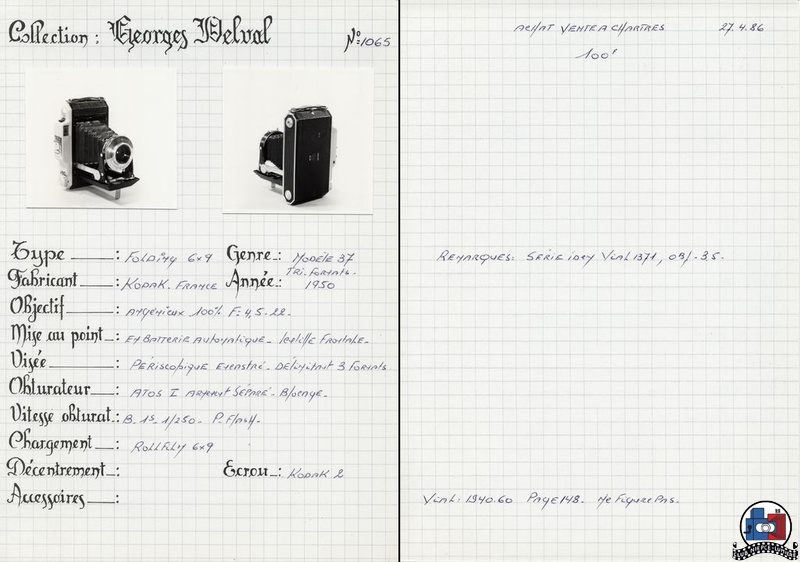 Collection : Georges Delval
N° 1065
Type : FOLDING 6x9
Genre : MODÈLE 37
TRI.FORMATS.
Fabricant : KODAK. FRANCE
Année : 1950
Objectif : ANGÉNIEUX 100% F=4,5-22.
Mise au point : EN BATTERIE AUTOMATIQUE - LENTILLE FRONTALE.
Visée : PÉRISCOPIQUE ENCASTRÉ. DÉLIMITANT 3 FORMATS
Obturateur : ATOS I ARMEMENT SÉPARÉ - BLOCAGE.
Vitesse obturat. : B. 1S. 1/250 - P. FLASH.
Chargement : ROLLFILM 6x9
Décentrement :
Ecrou : KODAK 2
Accessoires :
ACHAT VENTE A CHARTRES 27.4.86
100'
REMARQUES: SÉRIE IDEM VIAL 1371, OBJ. 3,5.
VIAL: 1940.60 PAGE 148. NE FIGURE PAS.